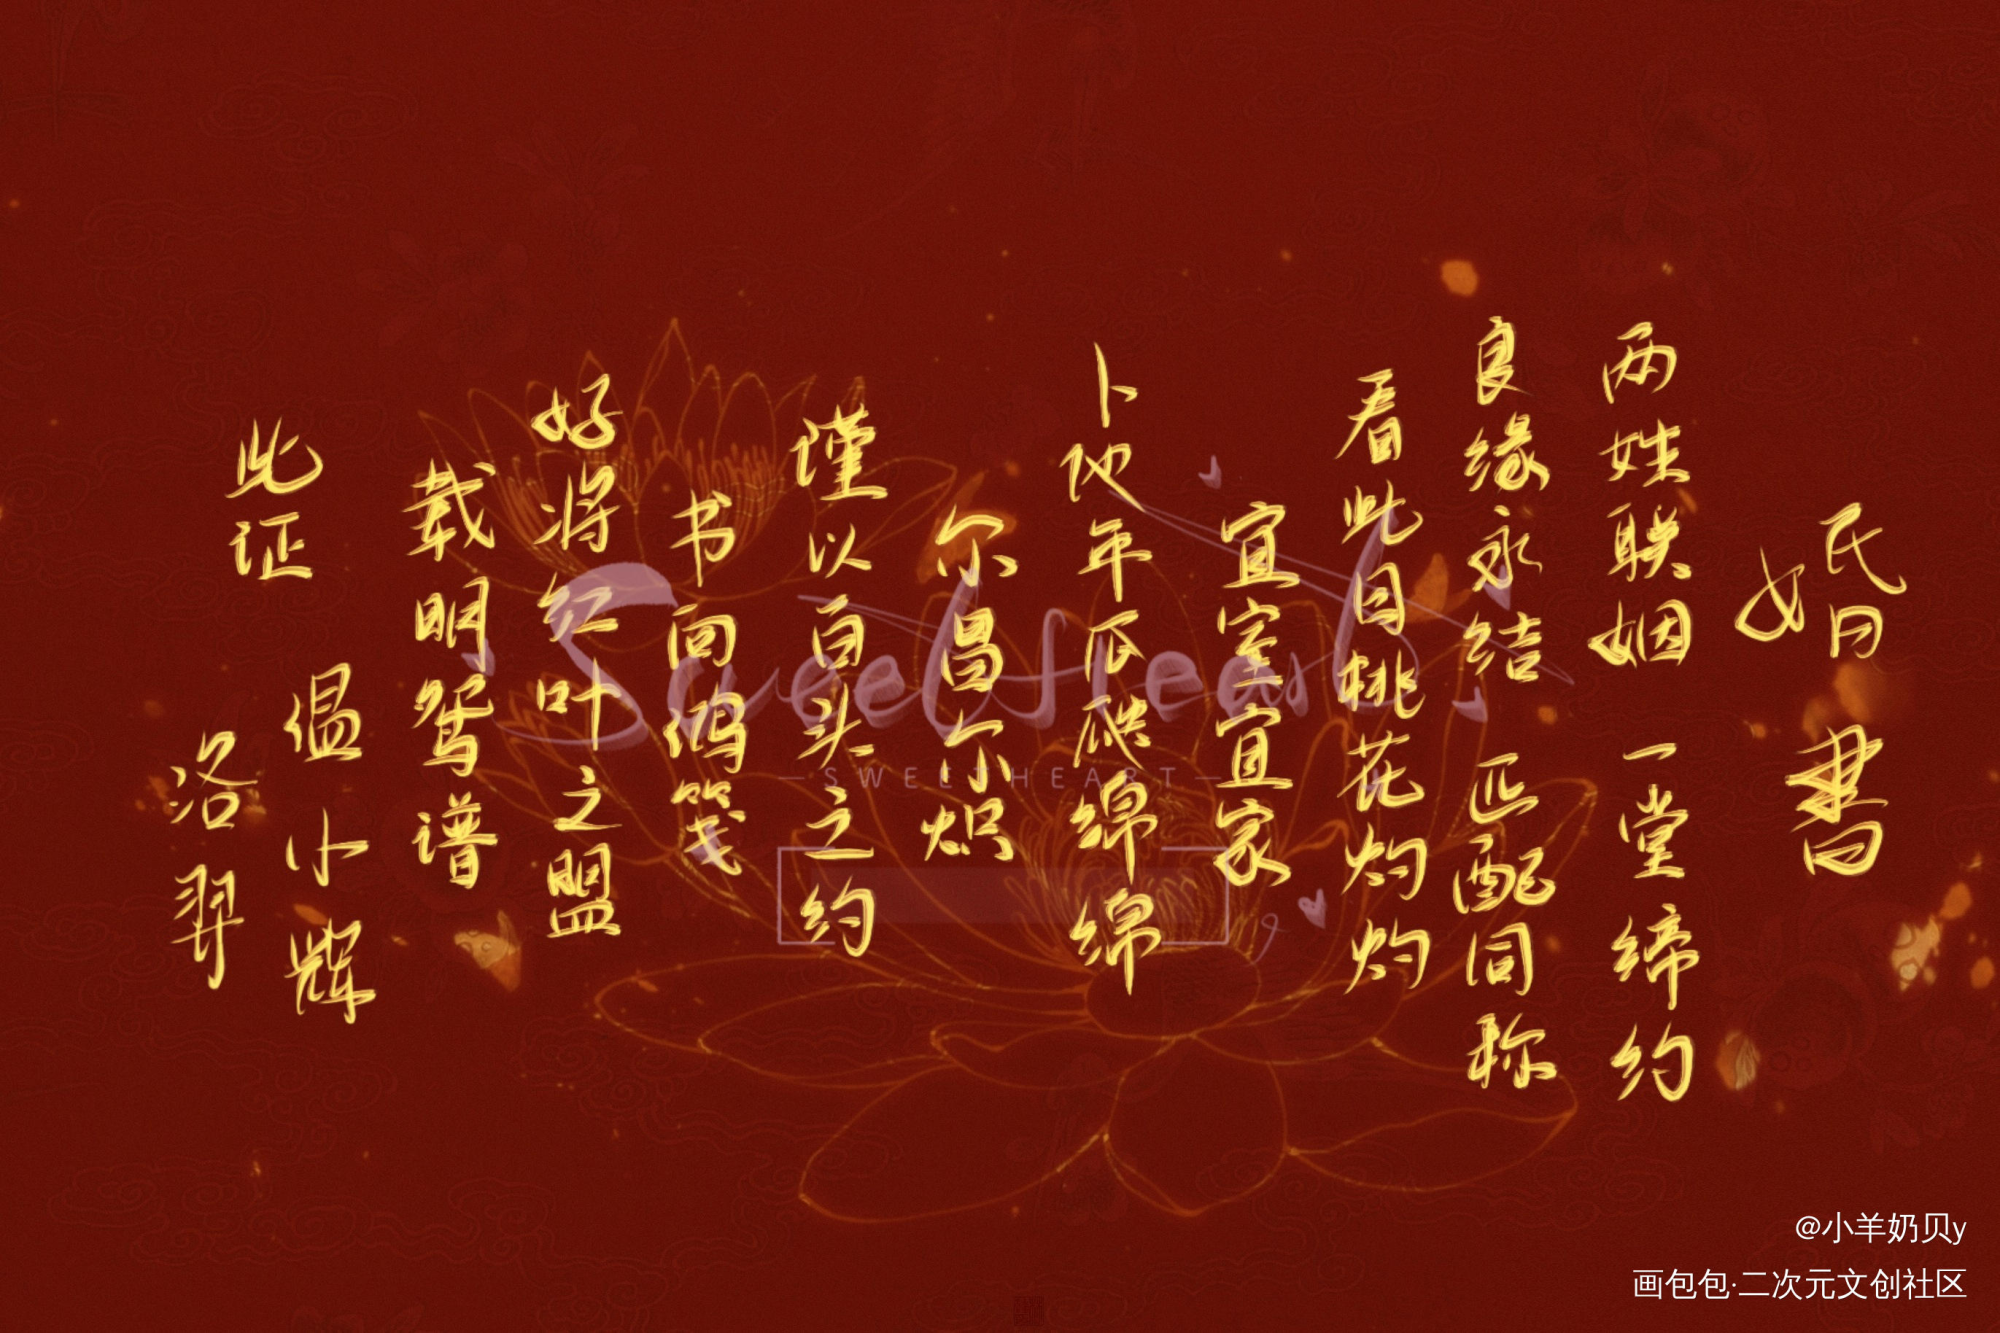 婚書
两姓联姻 一堂缔约
良缘永结 匹配同称
看此日桃花灼灼
宜室宜家
卜他年瓜瓞绵绵
尔昌尔炽
谨以白头之约
书向鸿笺
好将红叶之盟
载明鸳谱
此证
温小辉
洛羿
Sweetheart
SWEETHEART
@小羊奶贝y
画包包·二次元文创社区